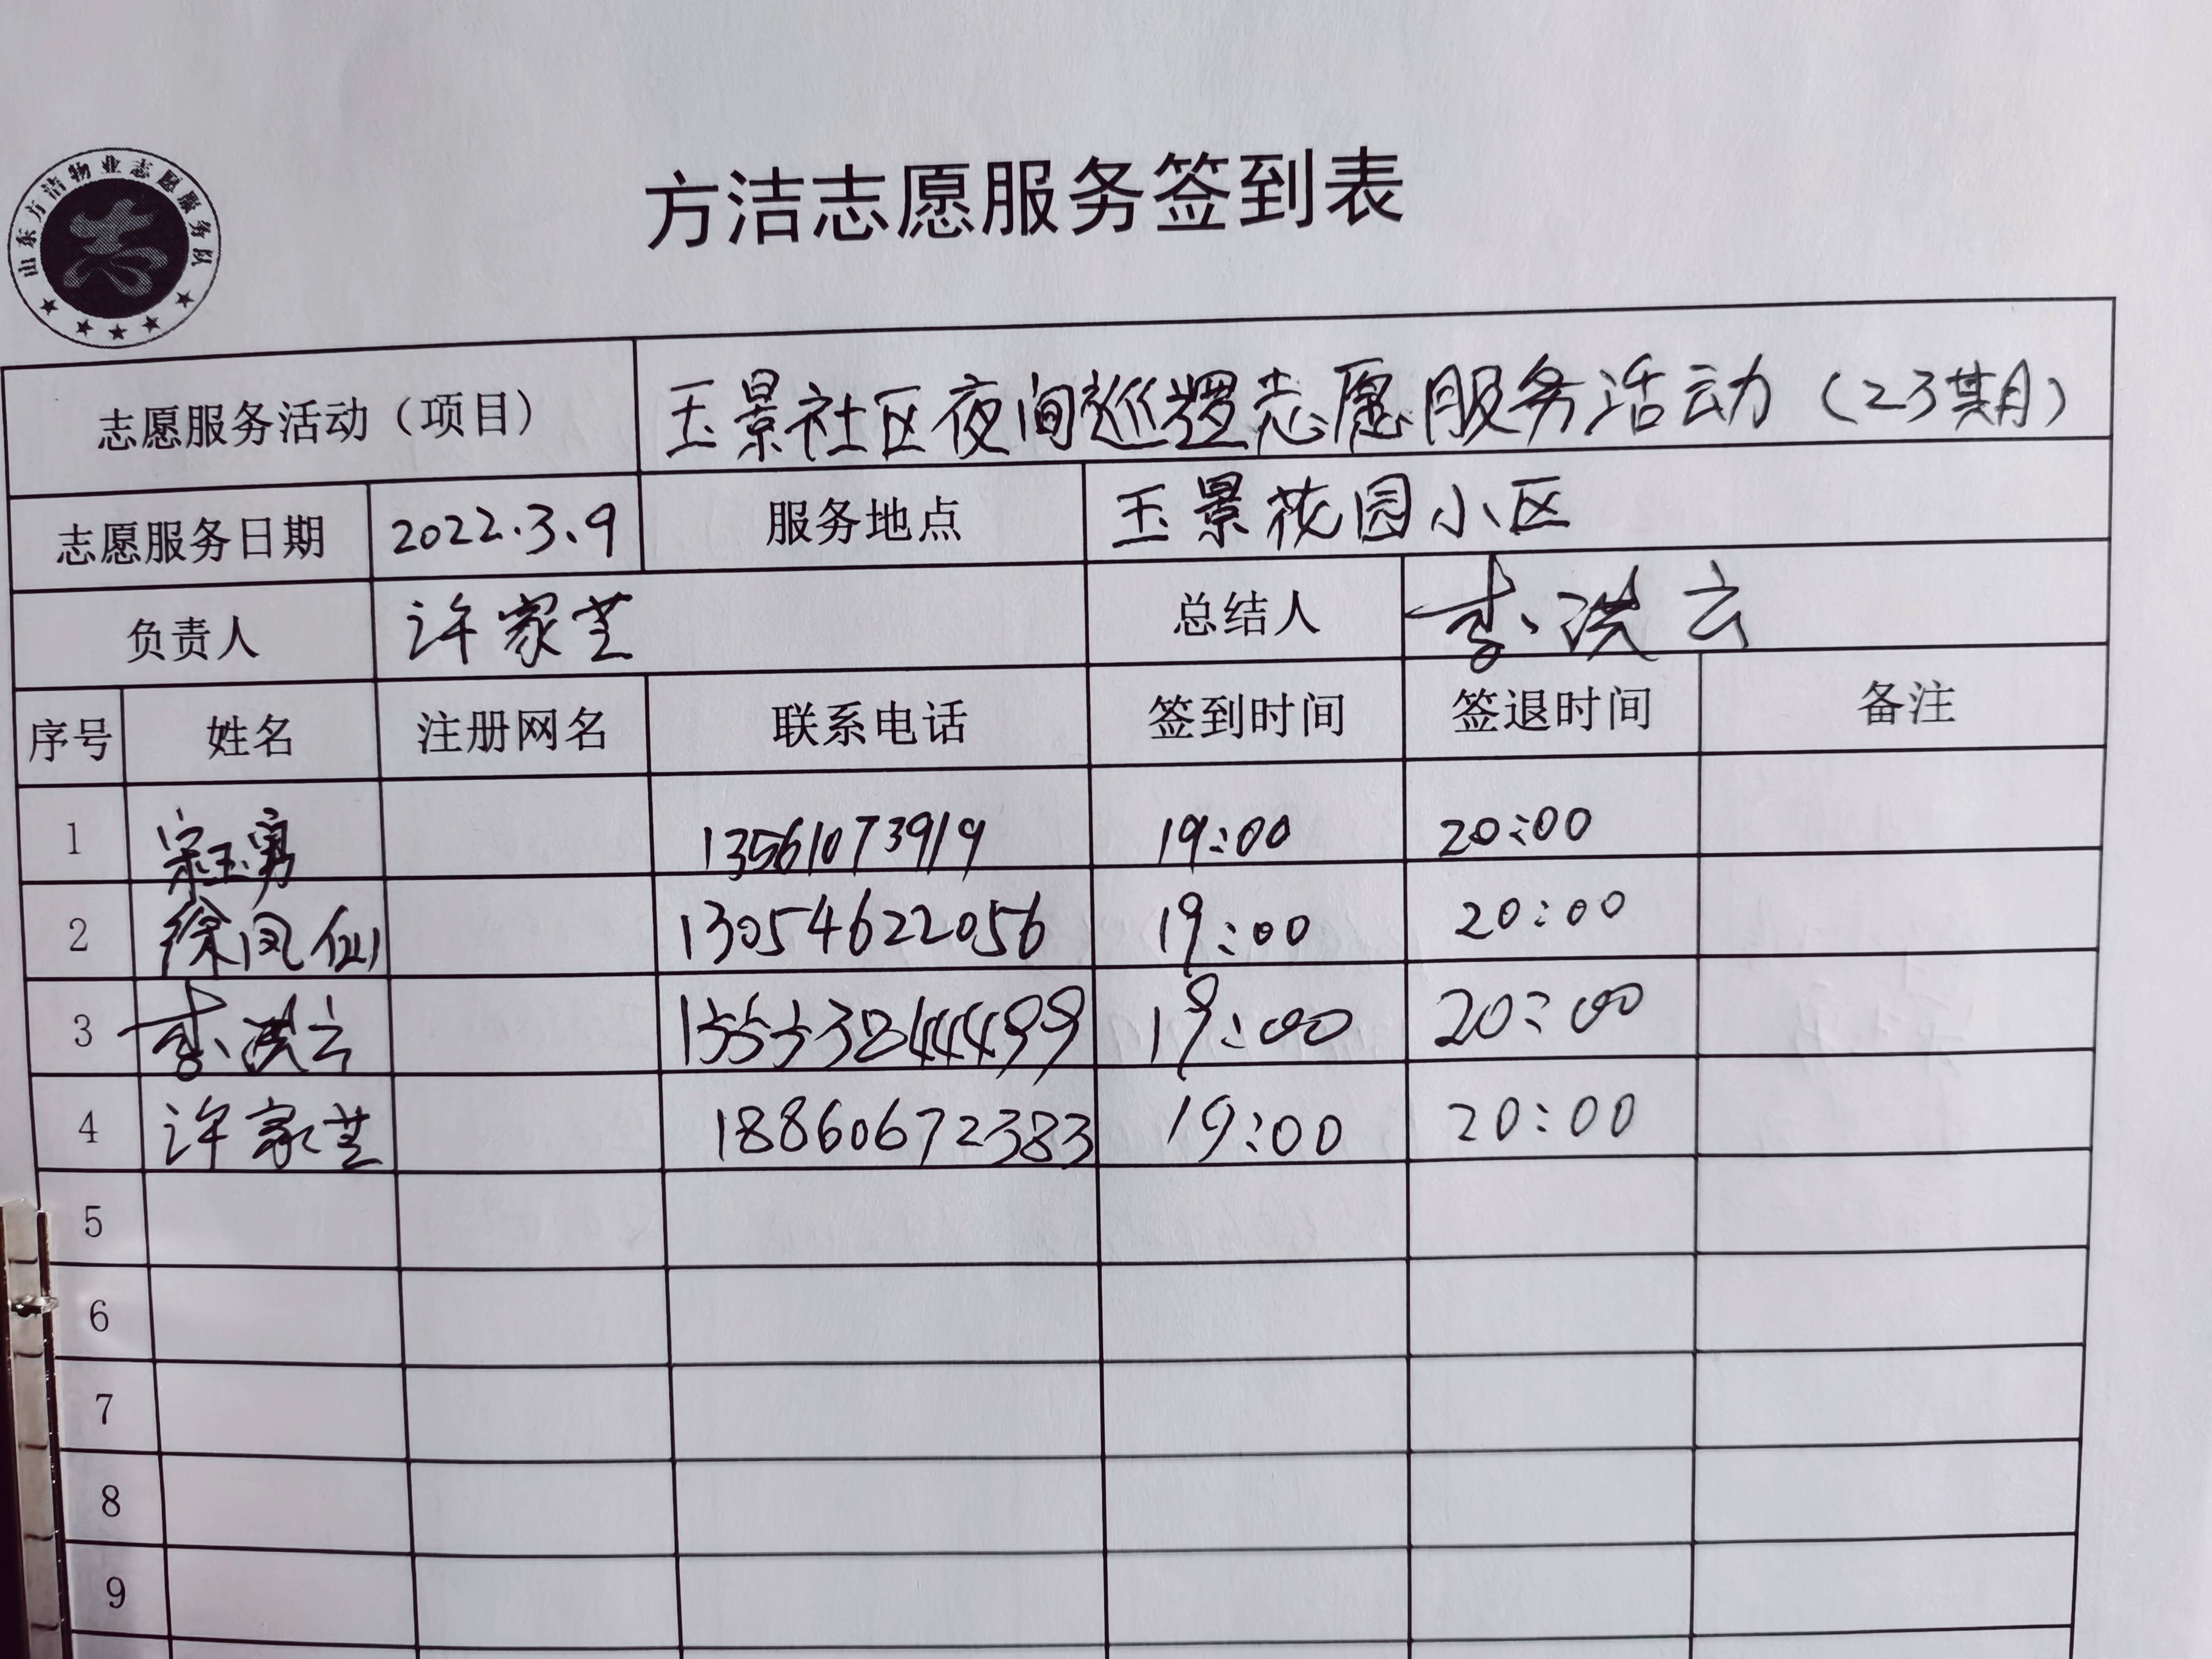 山东方洁物业志愿服务队
方洁志愿服务签到表
志愿服务活动（项目） 玉景社区夜间巡逻志愿服务活动（23期）
志愿服务日期 2022.3.9 服务地点 玉景花园小区
负责人 许家芝 总结人 李洪云
序号 姓名 注册网名 联系电话 签到时间 签退时间 备注
1 宋玉勇 13561073919 19:00 20:00
2 徐凤仙 13054622056 19:00 20:00
3 李洪云 15553824499 19:00 20:00
4 许家芝 18860672383 19:00 20:00
5
6
7
8
9